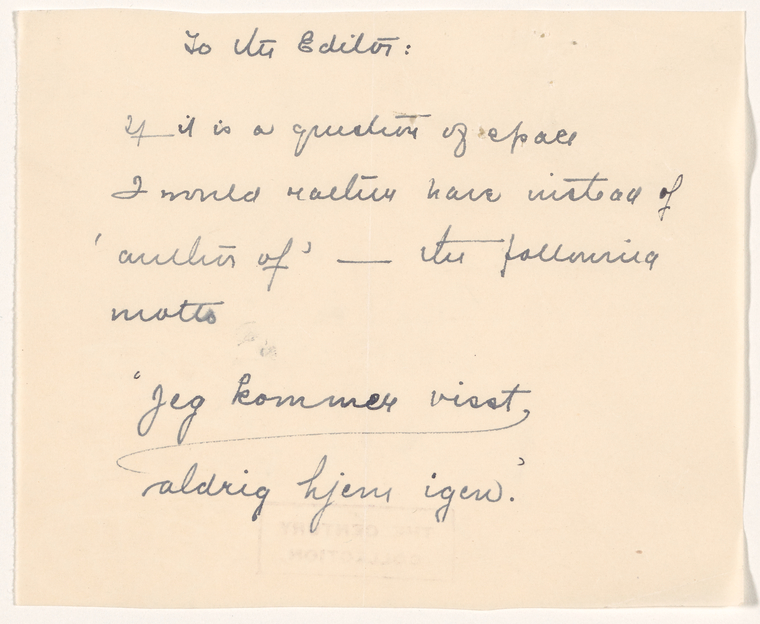 To the Editor:
If it is a question of space
I would rather have instead of
'author of' — the following
motto
'Jeg kommer visst,
aldrig hjem igen.'
THE CENTURY
COLLECTION